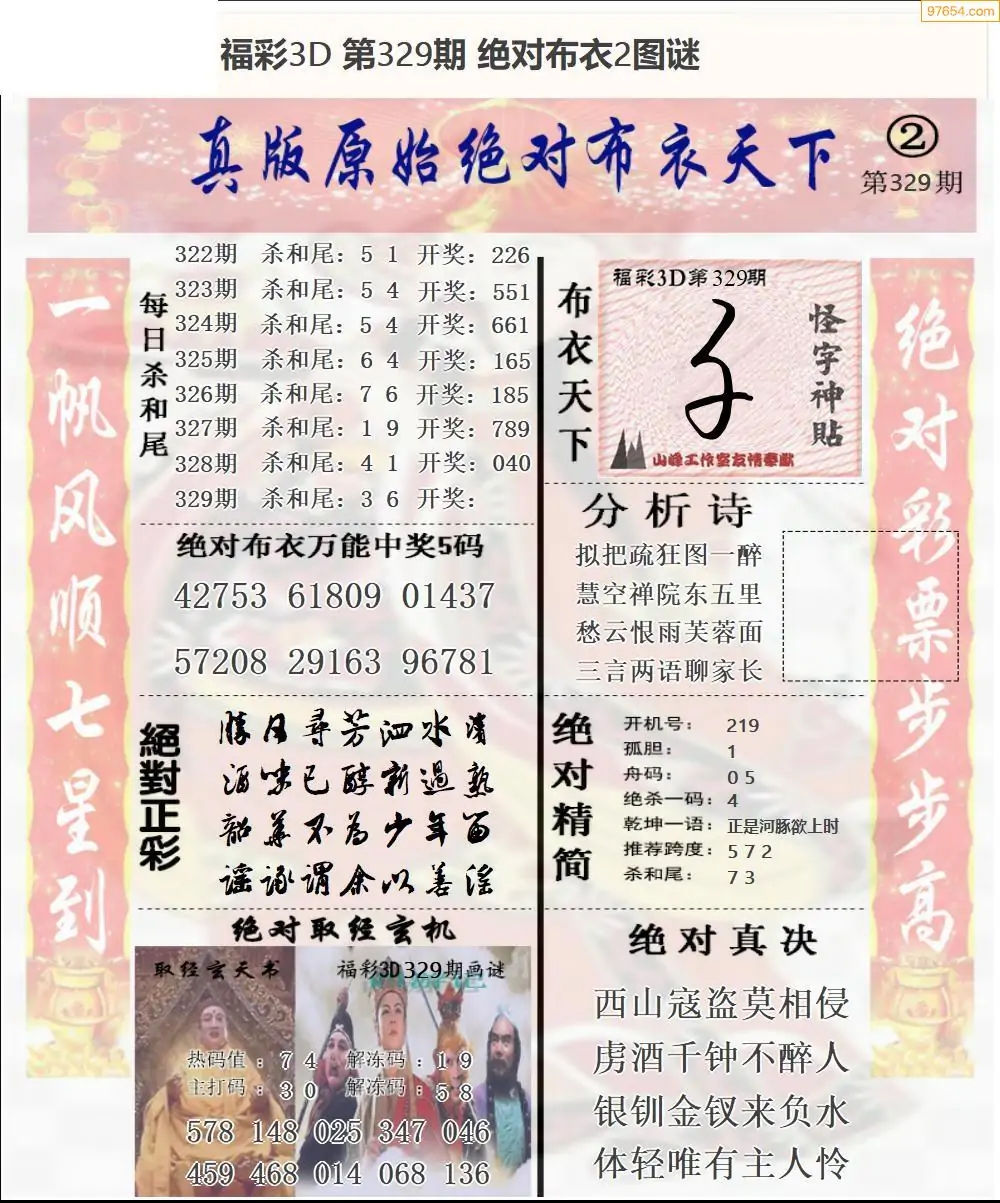 97654.com
福彩3D 第329期 绝对布衣2图谜
真版原始绝对布衣天下
②
第329期
一帆风顺七星到
每日杀和尾
322期 杀和尾：5 1 开奖：226
323期 杀和尾：5 4 开奖：551
324期 杀和尾：5 4 开奖：661
325期 杀和尾：6 4 开奖：165
326期 杀和尾：7 6 开奖：185
327期 杀和尾：1 9 开奖：789
328期 杀和尾：4 1 开奖：040
329期 杀和尾：3 6 开奖：
绝对布衣万能中奖5码
42753 61809 01437
57208 29163 96781
絕對正彩
勝日尋芳泗水濱
酒味已醇新過熟
韶華不為少年留
谣诼谓余以善淫
绝对取经玄机
取经玄天书
福彩3D329期画谜
热码值：7 4 解冻码：1 9
主打码：3 0 解冻码：5 8
578 148 025 347 046
459 468 014 068 136
布衣天下
福彩3D第329期
怪字神貼
山峰工作室友情奉献
分析诗
拟把疏狂图一醉
慧空禅院东五里
愁云恨雨芙蓉面
三言两语聊家长
绝对精简
开机号： 219
孤胆： 1
舟码： 0 5
绝杀一码：4
乾坤一语：正是河豚欲上时
推荐跨度：5 7 2
杀和尾： 7 3
绝对真决
西山寇盗莫相侵
虏酒千钟不醉人
银钏金钗来负水
体轻唯有主人怜
绝对彩票步步高